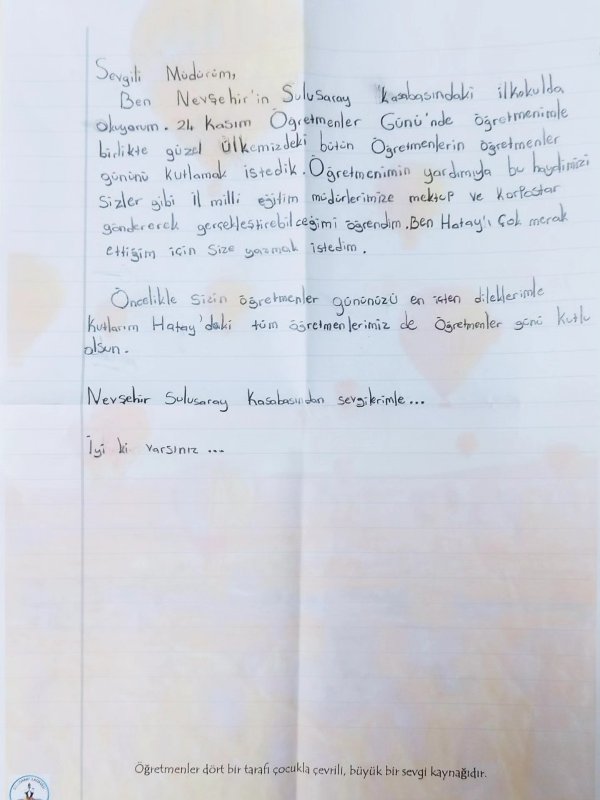 Sevgili Müdürüm,
Ben Nevşehir'in Sulusaray Kasabasındaki ilkokulda
okuyorum. 24 Kasım Öğretmenler Günü'nde öğretmenimle
birlikte güzel Ülkemizdeki bütün Öğretmenlerin öğretmenler
gününü kutlamak istedik. Öğretmenimin yardımıyla bu
Sizler gibi il milli eğitim müdürlerimize mektup ve Kartpostar
göndererek gerçekleştirebilceğimi öğrendim. Ben Hatay'ı çok merak
ettiğim için size yazmak istedim.
Öncelikle Sizin öğretmenler gününüzü en içten dileklerimle
kutlarım Hatay'daki tüm öğretmenlerimiz de Öğretmenler günü kutlu
olsun.
Nevşehir Sulusaray Kasabasından sevgilerimle...
İyi ki varsınız...
Öğretmenler dört bir tarafı çocukla çevrili, büyük bir sevgi kaynağıdır.